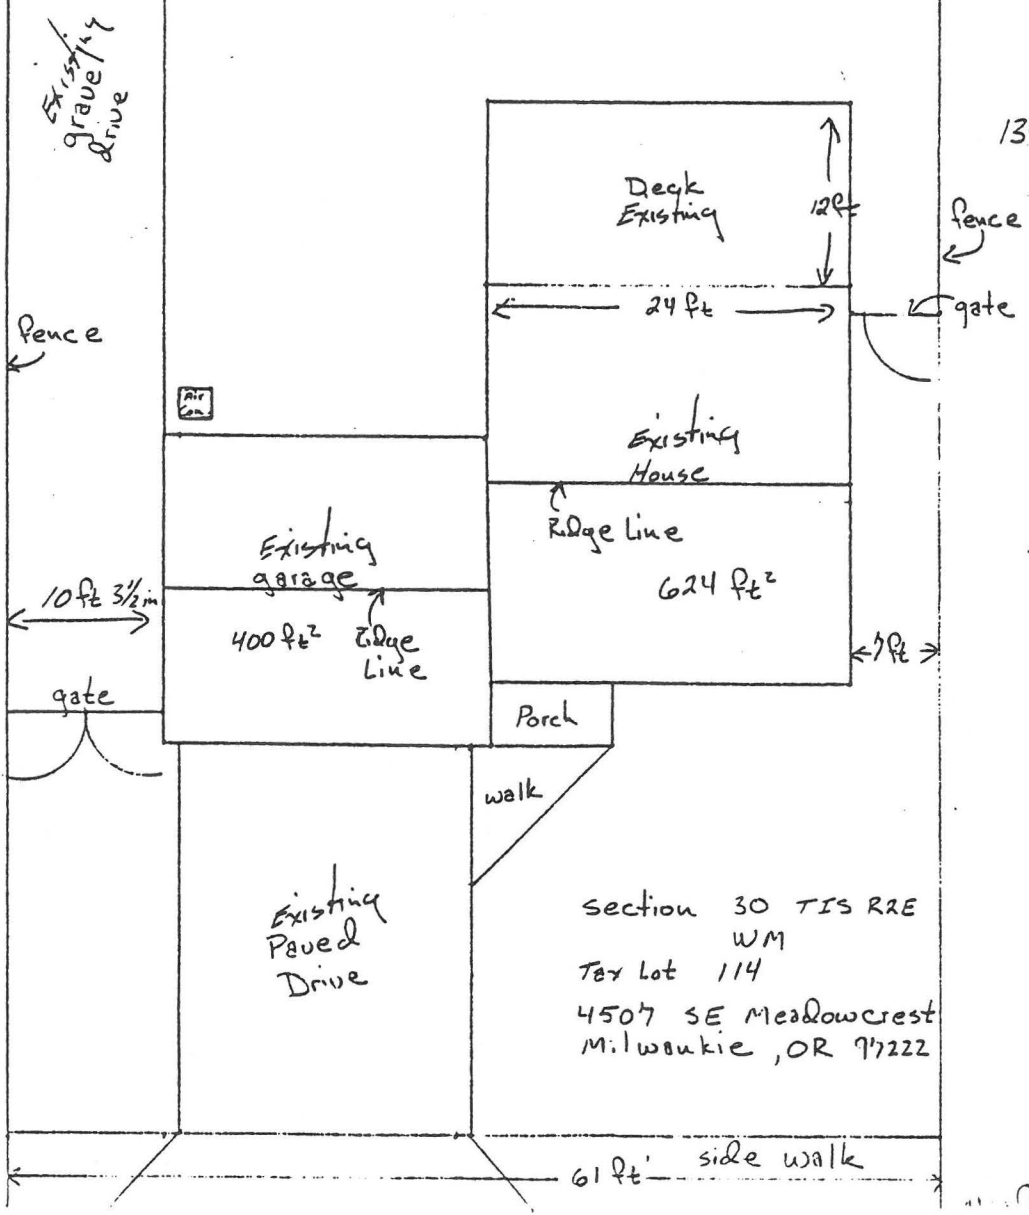 Existing
gravel
drive
13
Deck
Existing
12ft
fence
24 ft
gate
fence
Air
Con.
Existing
House
Ridge Line
Existing
garage
624 ft²
10ft 3½ in
400 ft²
Ridge
Line
7ft
gate
Porch
walk
Existing
Paved
Drive
Section 30 T1S R2E
WM
Tax Lot 114
4507 SE Meadowcrest
Milwaukie, OR 97222
side walk
61 ft